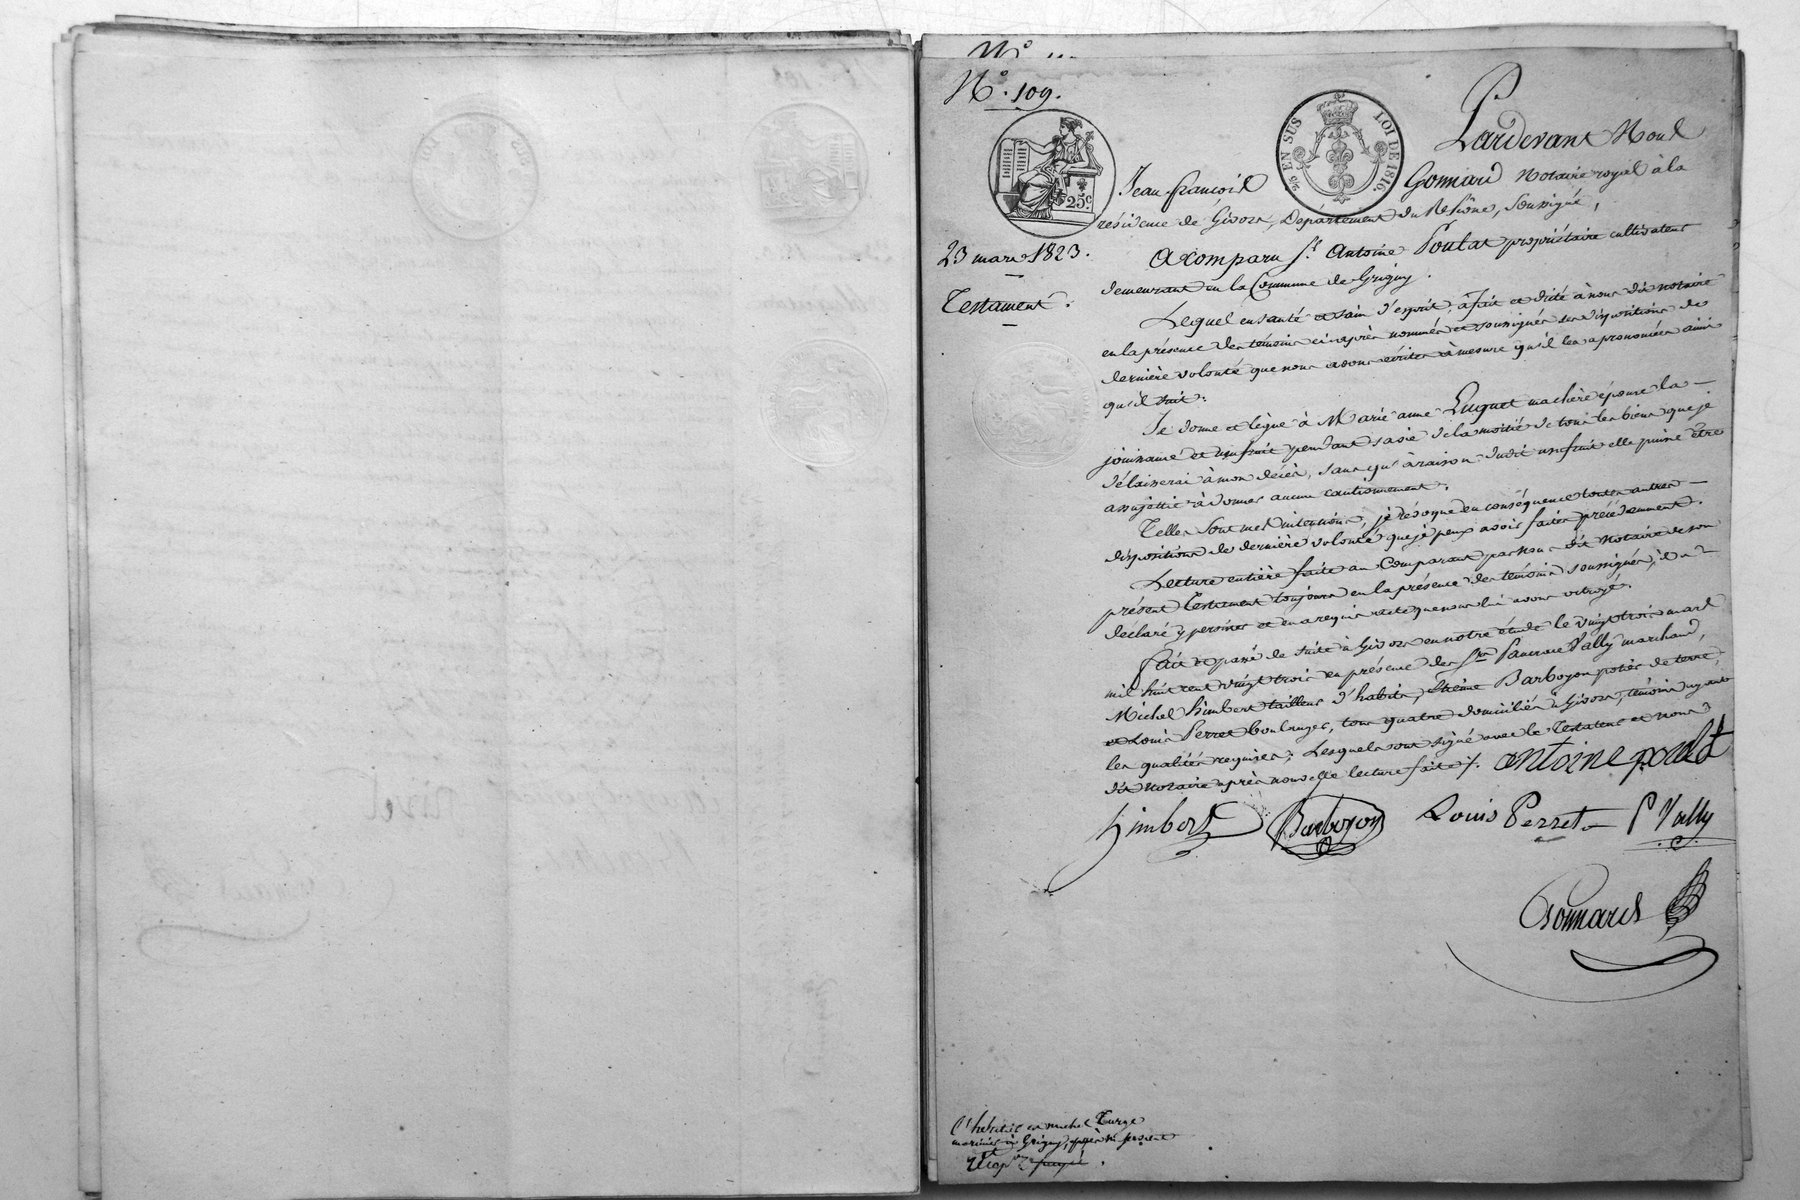 N.° 109.
25c
EN SUS LOI DE 1816.
Pardevant Nous
Jean françois Gonnard Notaire royal à la
résidence de Givors, Département du Rhône, soussigné,
23 mars 1823.
Testament.
a comparu Sr. Antoine Poulat propriétaire cultivateur
demeurant en la Commune de Grigny.
Lequel en santé et sain d'esprit, à fait et dicté à nous dit notaire
en la présence des témoins ci après nommés et soussignés ses dispositions de
dernière volonté que nous avons écrites à mesure qu'il les a prononcées ainsi
qu'il suit:
Je donne et lègue à Marie anne Luquet ma chère épouse la
jouissance et usufruit pendant sa vie de la moitié de tous les biens que je
délaisserai à mon décès, sans qu'à raison dudit usufruit elle puisse être
assujettie à donner aucun cautionnement.
Telles sont mes intentions, je révoque en conséquence toutes autres
dispositions de dernière volonté que je peux avoir faites précédemment.
Lecture entière faite au Comparant par nous dit Notaire de son
présent testament toujours en la présence des témoins soussignés, il a
declaré y persister et en a requis acte que nous lui avons octroyé.
fait et passé de suite à Givors en notre étude le vingt trois mars
mil huit cent vingt trois en présence des Srs. Pancrace Vally marchand,
Michel himbert tailleur d'habits, Etienne Barboyon potier de terre,
et Louis Perret boulanger, tous quatre domiciliés à Givors, témoins ayant
les qualités requises; Lesquels ont signé avec le Testateur et nous
dit Notaire après nouvelle lecture faite /.
antoine poulat
himbert Barboyon Louis Perret P Vally
Gonnard
l'héritié est michel Turge
marinier à Grigny,